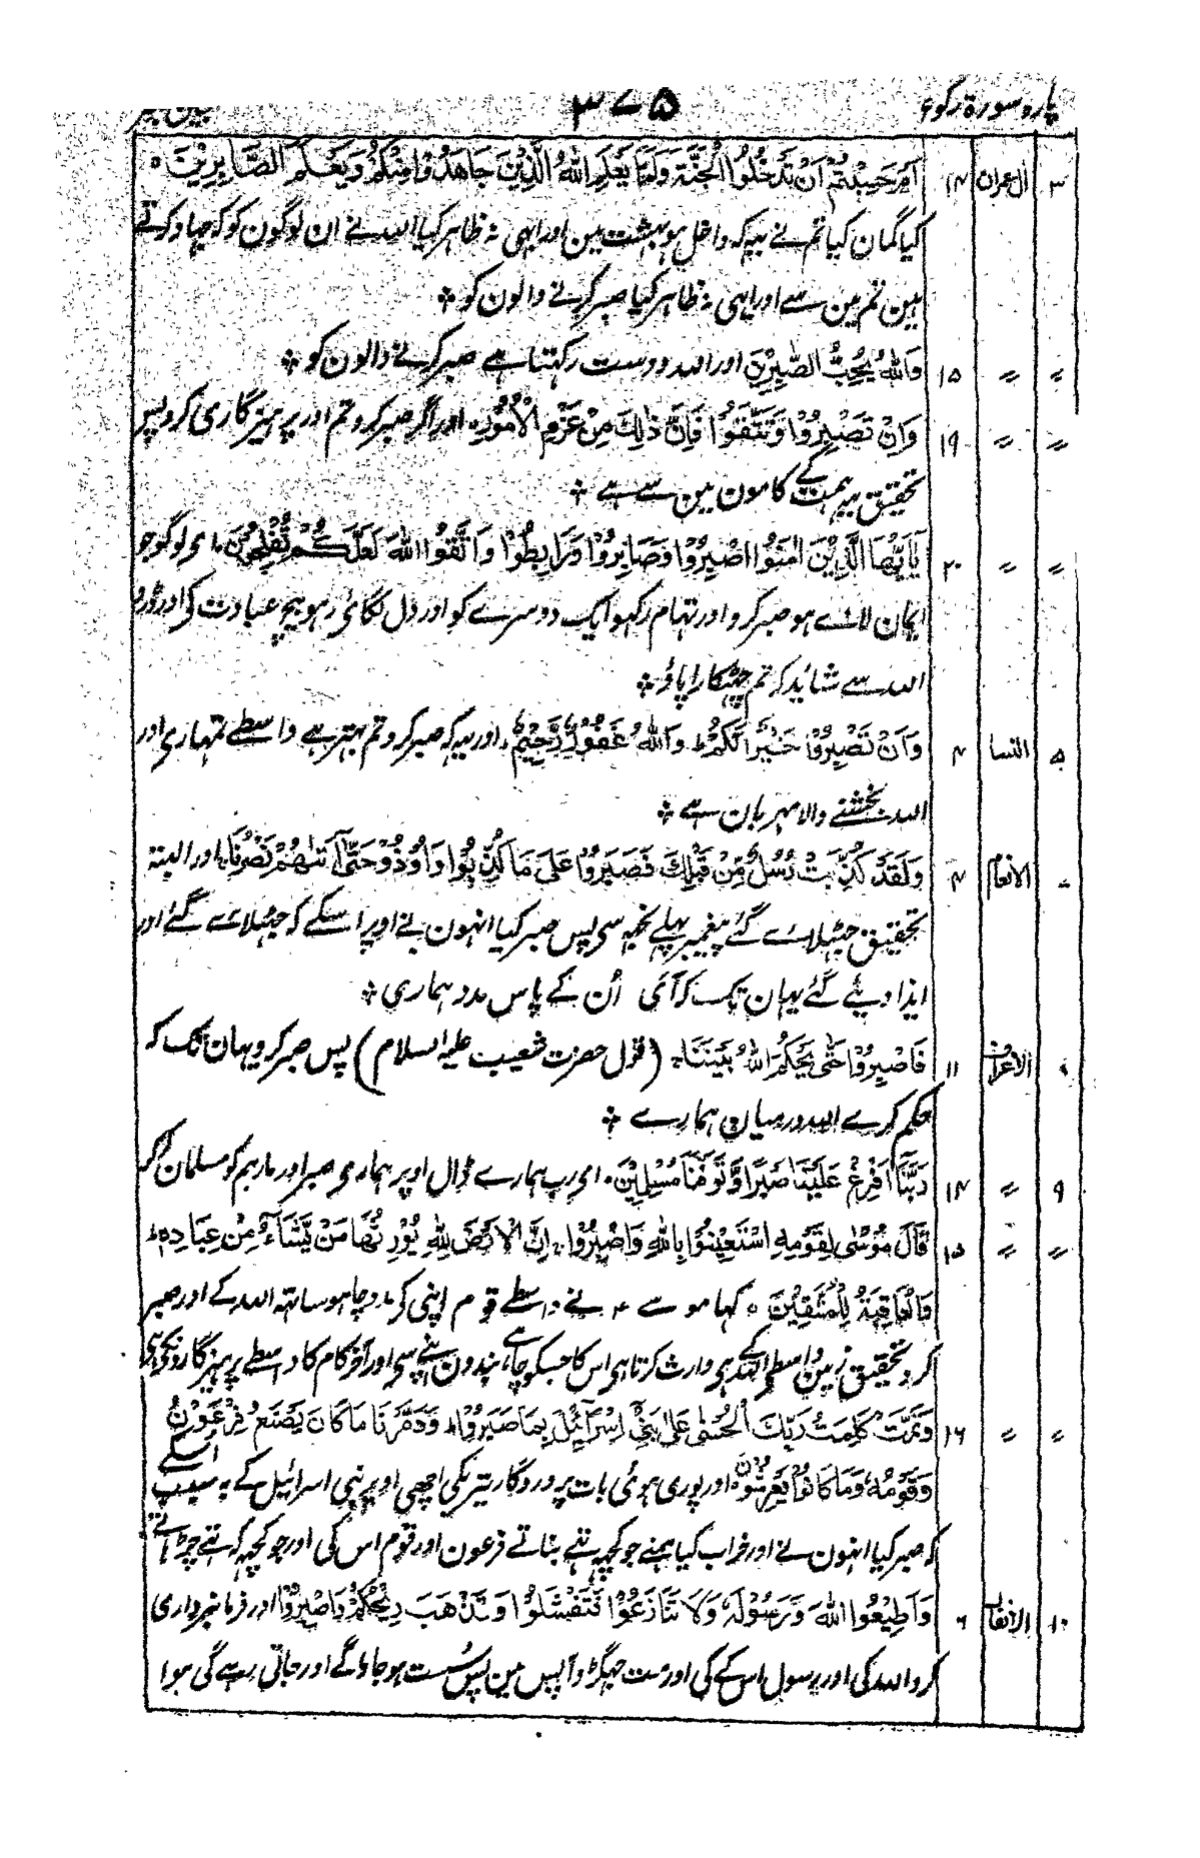 پارہ سورۃ رکوع ۳۷۵
۳ آل عمران ۱۴ اَمْ حَسِبْتُمْ اَنْ تَدْخُلُوا الْجَنَّةَ وَلَمَّا يَعْلَمِ اللهُ الَّذِيْنَ جَاهَدُوْا مِنْكُمْ وَيَعْلَمَ الصَّابِرِيْنَ ہ
کیا گمان کیا تم نے یہ کہ داخل ہو بہشت مین اور ابہی نہ ظاہر کیا اللہ نے ان لوگون کو کہ جہاد کرتے
ہین تم مین سے اور ابہی نہ ظاہر کیا صبر کرنے والون کو ÷
〃 〃 ۱۵ وَاللهُ يُحِبُّ الصّٰبِرِيْنَ اور اللہ دوست رکہتا ہے صبر کرنے والون کو ÷
〃 〃 ۱۹ وَاِنْ تَصْبِرُوْا وَتَتَّقُوْا فَاِنَّ ذٰلِكَ مِنْ عَزْمِ الْاُمُوْرِہ اور اگر صبر کرو تم اور پرہیزگاری کرو پس
تحقیق یہ ہمت کے کامون مین سے ہے ÷
〃 〃 ۲۰ يٰاَيُّهَا الَّذِيْنَ اٰمَنُوا اصْبِرُوْا وَصَابِرُوْا وَرَابِطُوْا وَاتَّقُوا اللهَ لَعَلَّكُمْ تُفْلِحُوْنَ۔ ای لوگو جو
ایمان لائے ہو صبر کرو اور تہام رکہو ایک دوسرے کو اور دل لگائی رہو بیچ عبادت کی اور ڈرو
اللہ سے شائد کہ تم چہٹکارا پاؤ ÷
۵ النسا ۴ وَاَنْ تَصْبِرُوْا خَيْرٌ لَّكُمْ ط وَاللهُ غَفُوْرٌ رَّحِيْمٌ۔ اور یہ کہ صبر کرو تم بہتر ہے واسطے تمہاری اور
اللہ بخشنے والا مہربان ہے ÷
۷ الانعام ۴ وَلَقَدْ كُذِّبَتْ رُسُلٌ مِّنْ قَبْلِكَ فَصَبَرُوْا عَلٰى مَا كُذِّبُوْا وَاُوْذُوْا حَتّٰى اَتٰىهُمْ نَصْرُنَا۔ اور البتہ
تحقیق جہٹلائے گئے پیغمبر پہلے تجہہ سی پس صبر کیا انہون نے اوپر اسکے کہ جہٹلائے گئے اور
ایذا دیئے گئے یہان تک کہ آئی اُن کے پاس مدد ہماری ÷
الاعراف ۱۱ فَاصْبِرُوْا حَتّٰى يَحْكُمَ اللهُ بَيْنَنَا۔ (قول حضرت شعیب علیہ السلام) پس صبر کرو یہان تک کہ
حکم کرے اللہ درمیان ہمارے ÷
۹ 〃 ۱۴ رَبَّنَا اَفْرِغْ عَلَيْنَا صَبْرًا وَّتَوَفَّنَا مُسْلِمِيْنَ۔ ای رب ہمارے ڈال اوپر ہماری صبر اور مار ہم کو مسلمان کر کر
〃 〃 ۱۵ قَالَ مُوْسٰى لِقَوْمِهِ اسْتَعِيْنُوْا بِاللهِ وَاصْبِرُوْا۔ اِنَّ الْاَرْضَ لِلهِ يُوْرِثُهَا مَنْ يَّشَآءُ مِنْ عِبَادِهٖ ط
وَالْعَاقِبَةُ لِلْمُتَّقِيْنَ ہ کہا موسے ۴ نے واسطے قوم اپنی کی مدد چاہو ساتہہ اللہ کے اور صبر
کرو تحقیق زمین واسطے اللہ کے ہی وارث کرتا ہی اس کا جسکو چاہے بندون اپنے سی اور آخر کام کا واسطے پرہیزگارونکی ہی
〃 〃 ۱۶ وَتَمَّتْ كَلِمَتُ رَبِّكَ الْحُسْنٰى عَلٰى بَنِيْ اِسْرَآئِيْلَ بِمَا صَبَرُوْا ط وَدَمَّرْنَا مَا كَانَ يَصْنَعُ فِرْعَوْنُ
وَقَوْمُهٗ وَمَا كَانُوْا يَعْرِشُوْنَ۔ اور پوری ہوئی بات پروردگار تیری کی اچھی اوپر بنی اسرائیل کے بہ سبب اسکے
کہ صبر کیا انہون نے اور خراب کیا ہمنے جو کچہہ تہے بناتے فرعون اور قوم اس کی اور جو کچہہ کہ تہے چڑہاتے
۱۰ الانفال ۶ وَاَطِيْعُوا اللهَ وَرَسُوْلَهٗ وَلَا تَنَازَعُوْا فَتَفْشَلُوْا وَتَذْهَبَ رِيْحُكُمْ وَاصْبِرُوْا اور فرمانبرداری
کرو اللہ کی اور رسول اس کے کی اور مت جہگڑو آپس مین پس سُست ہو جاؤگے اور جاتی رہے گی ہوا